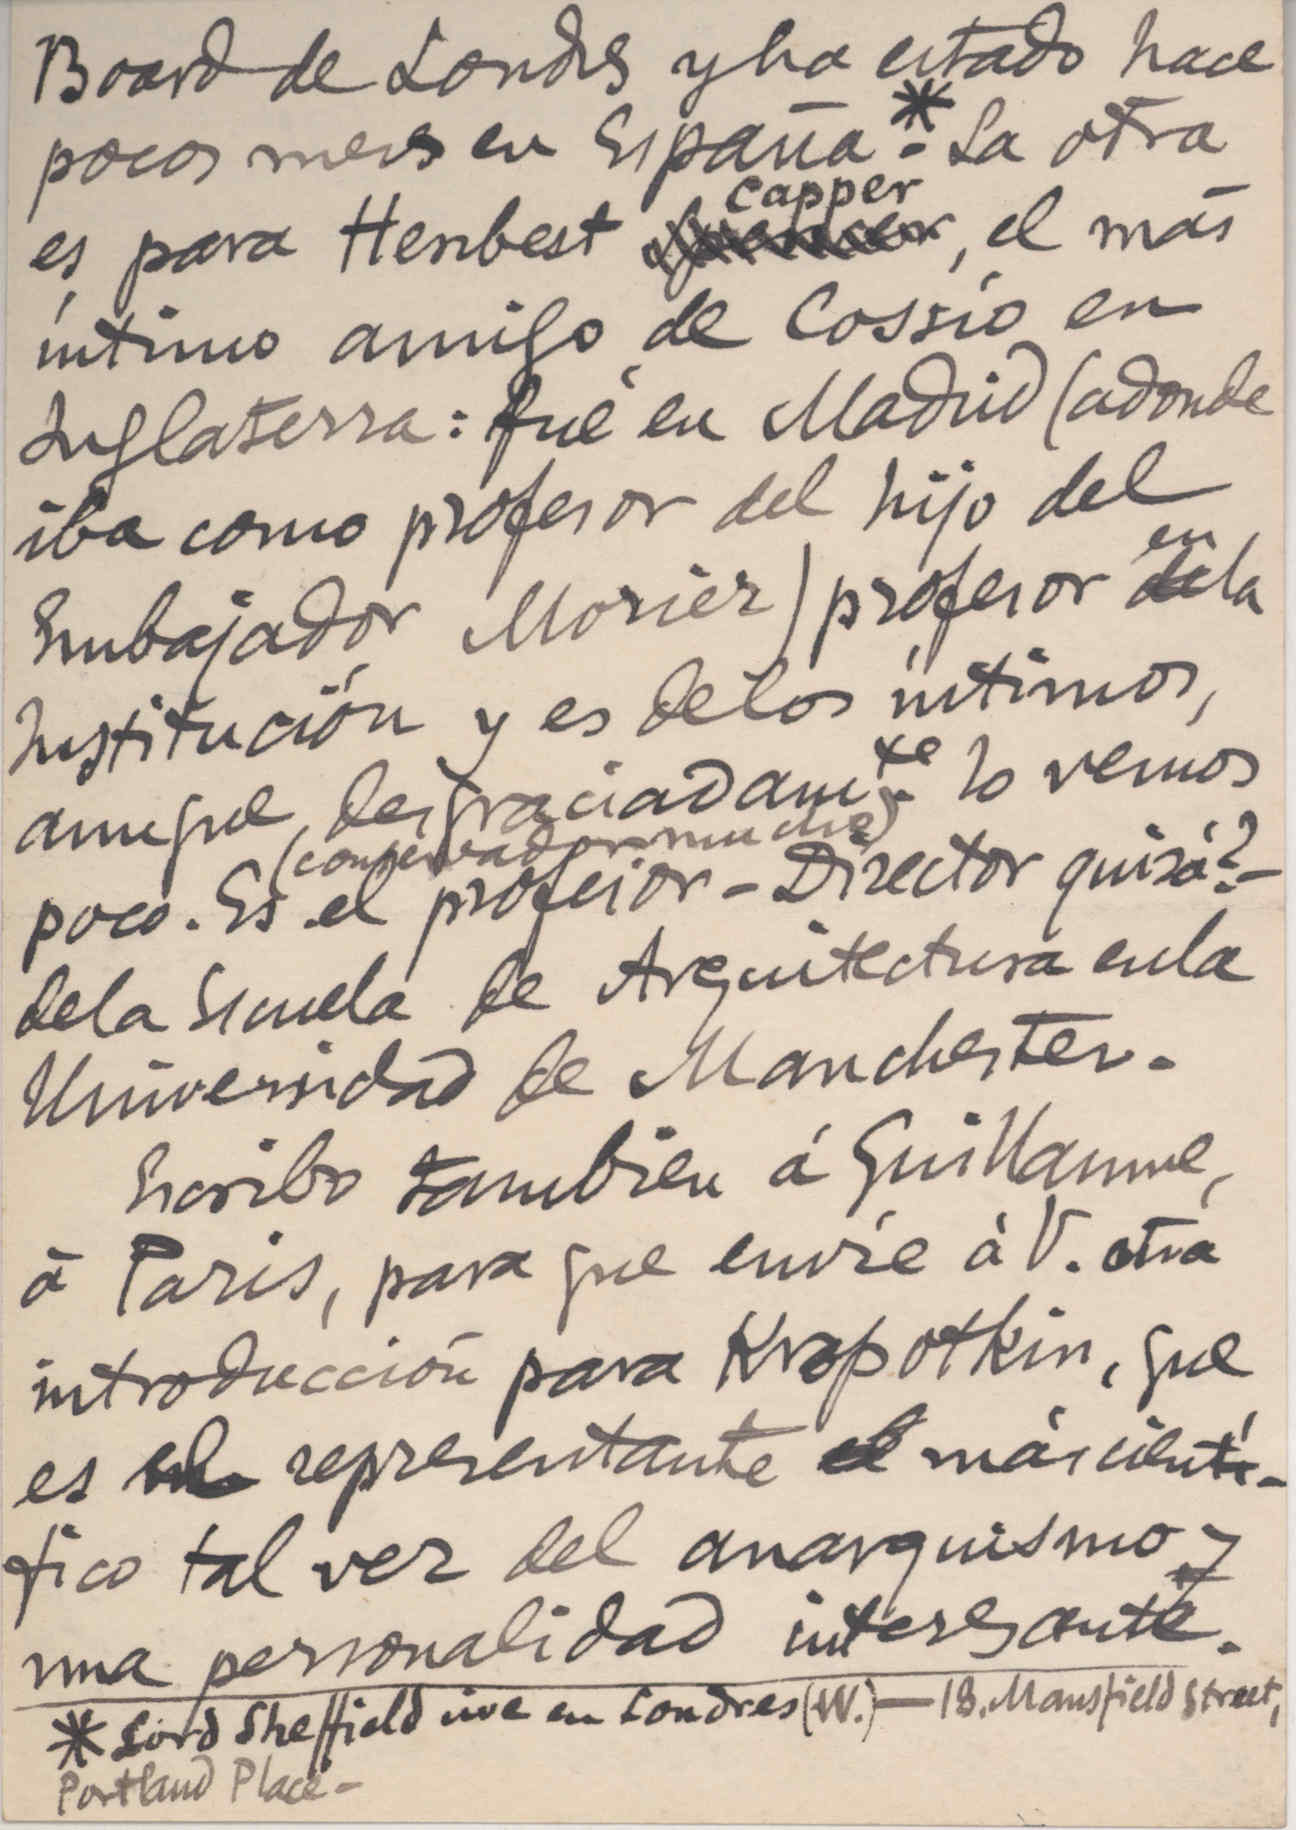 Board de Londres y ha estado hace
pocos meses en España.* La otra
es para Henbest Capper, el más
íntimo amigo de Cossío en
Inglaterra: fué en Madrid (adonde
iba como profesor del hijo del
Embajador Morier) profesor en la
Institución y es de los íntimos,
aunque, desgraciadamte. lo vemos
poco. Es el (conservador mucho) profesor - Director quizá? -
de la Escuela de Arquitectura en la
Universidad de Manchester.
Escribo tambien á Guillaume,
á Paris, para que envíe á V. otra
introducción para Kropotkin, que
es el representante más cientí-
fico tal vez del anarquismo y
una personalidad interesante.
* Lord Sheffield vive en Londres (W.) — 18. Mansfield Street,
Portland Place -